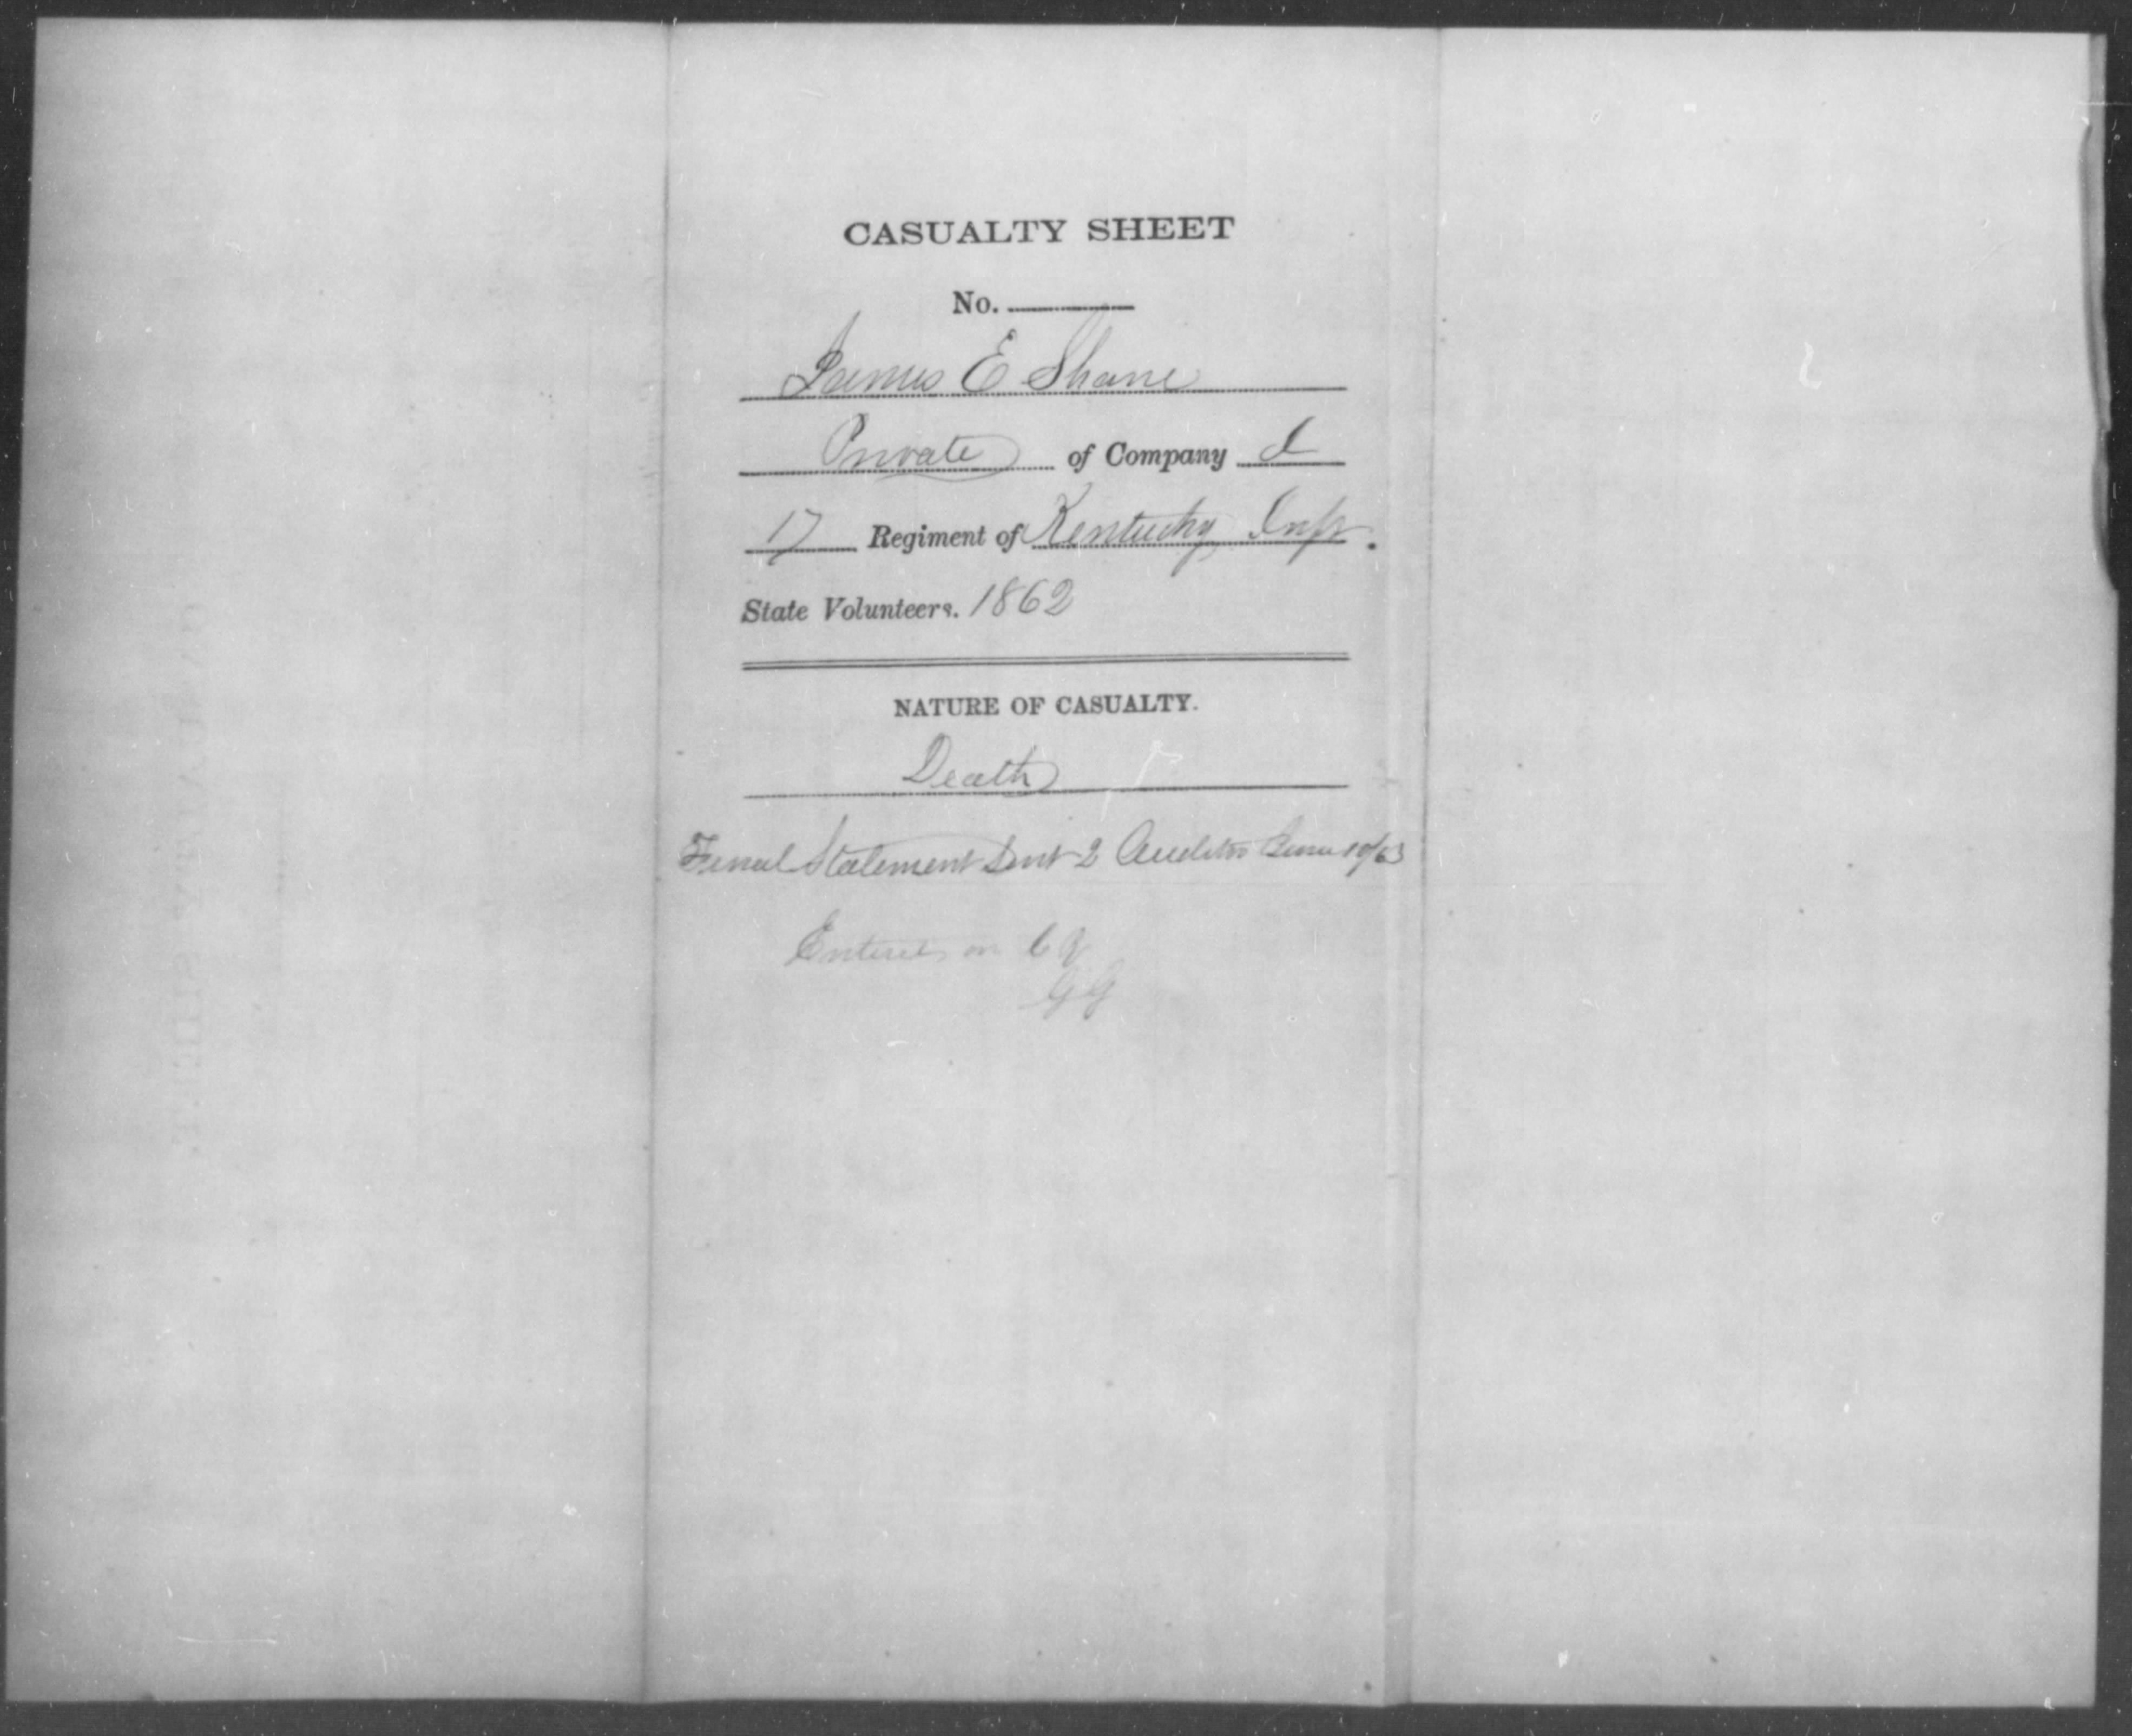 CASUALTY SHEET
No.
James E Shane
Private of Company I
17 Regiment of Kentucky Infy.
State Volunteers. 1862
NATURE OF CASUALTY.
Death
Final Statement Sent 2 Auditor June 10/63
Entered on
GG